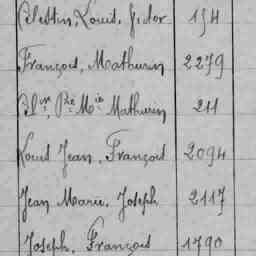 Célestin, Louis, Victor 154
François, Mathurin 2279
Mathurin 211
Louis Jean, François 2094
Jean Marie, Joseph 2117
Joseph, François 1790